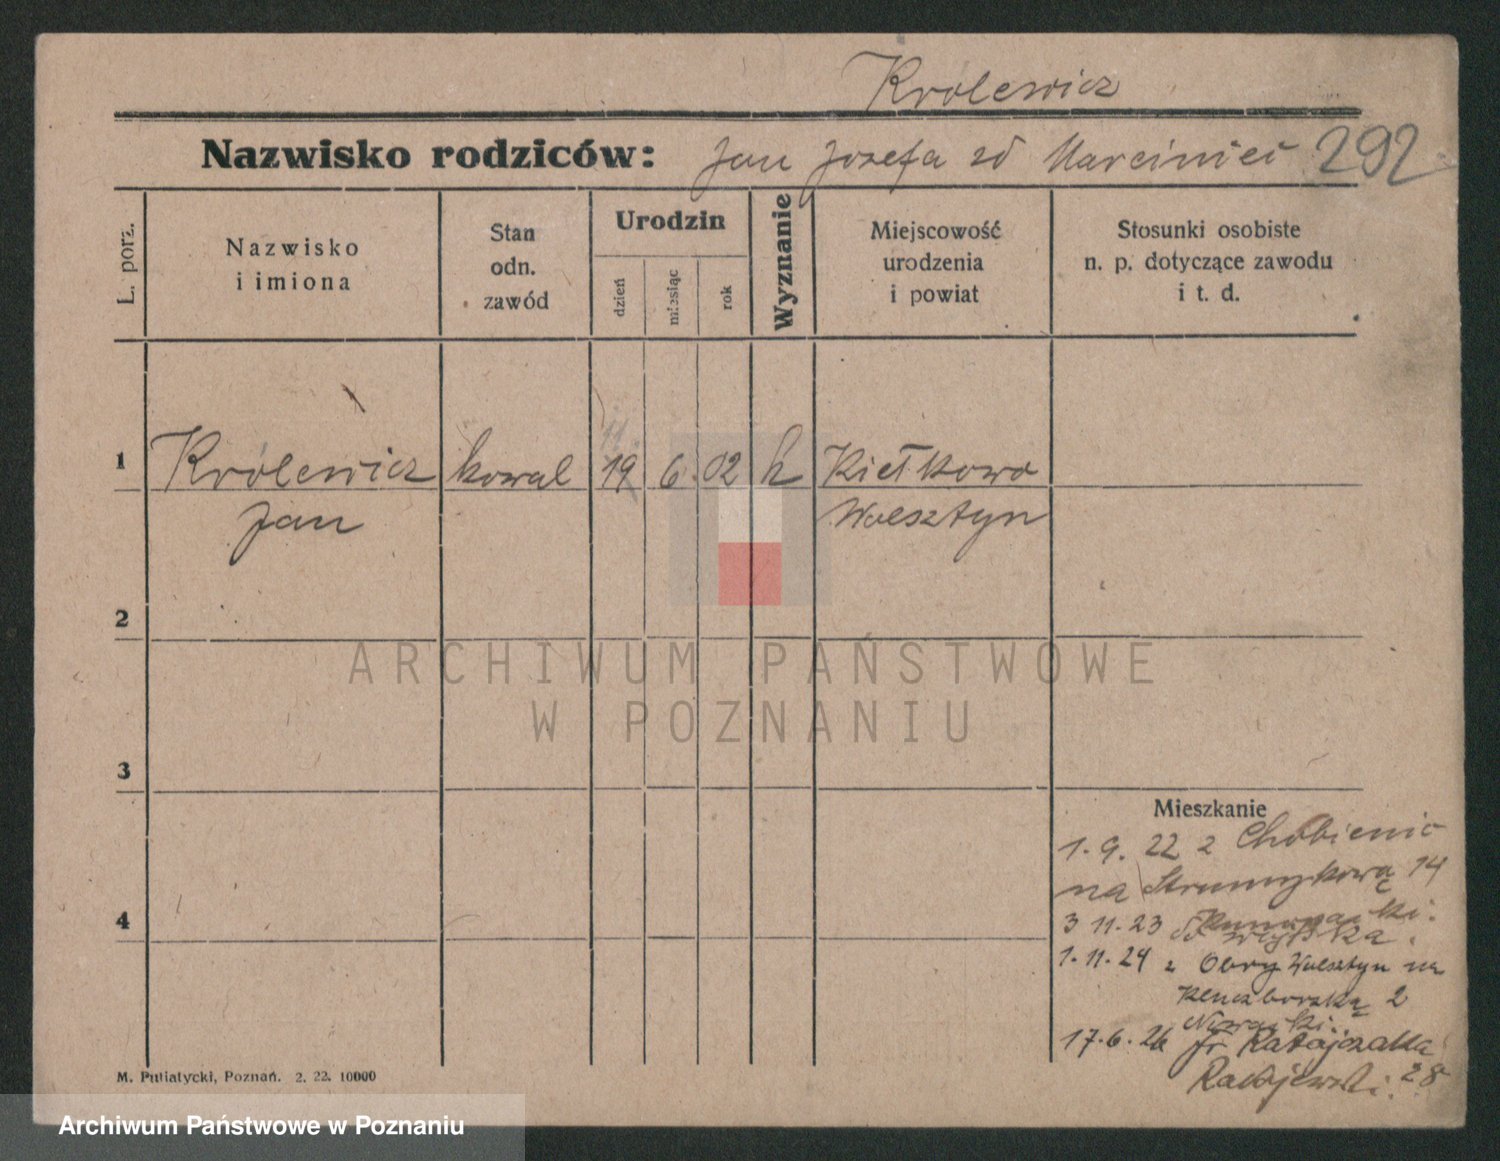 Królewicz
Nazwisko rodziców: Jan Józefa zd Marciniec 292
L. porz.
Nazwisko
i imiona
Stan
odn.
zawód
Urodzin
dzień
miesiąc
rok
Wyznanie
Miejscowość
urodzenia
i powiat
Stosunki osobiste
n. p. dotyczące zawodu
i t. d.
11.
1 Królewicz kowal 19 6. 02 k Kiełkowo
Jan Wolsztyn
2
ARCHIWUM PAŃSTWOWE
W POZNANIU
3
Mieszkanie
1.9. 22 z Chobienic
na Strumykową 14
4
3 11.23
do wojska.
1.11.24 z Obry Wolsztyn na
Kluczborską 2
Nowacki.
17.6.26 fr Ratajczaka
Ratajewski. 28
M. Putiatycki, Poznań. 2. 22. 10000
Archiwum Państwowe w Poznaniu